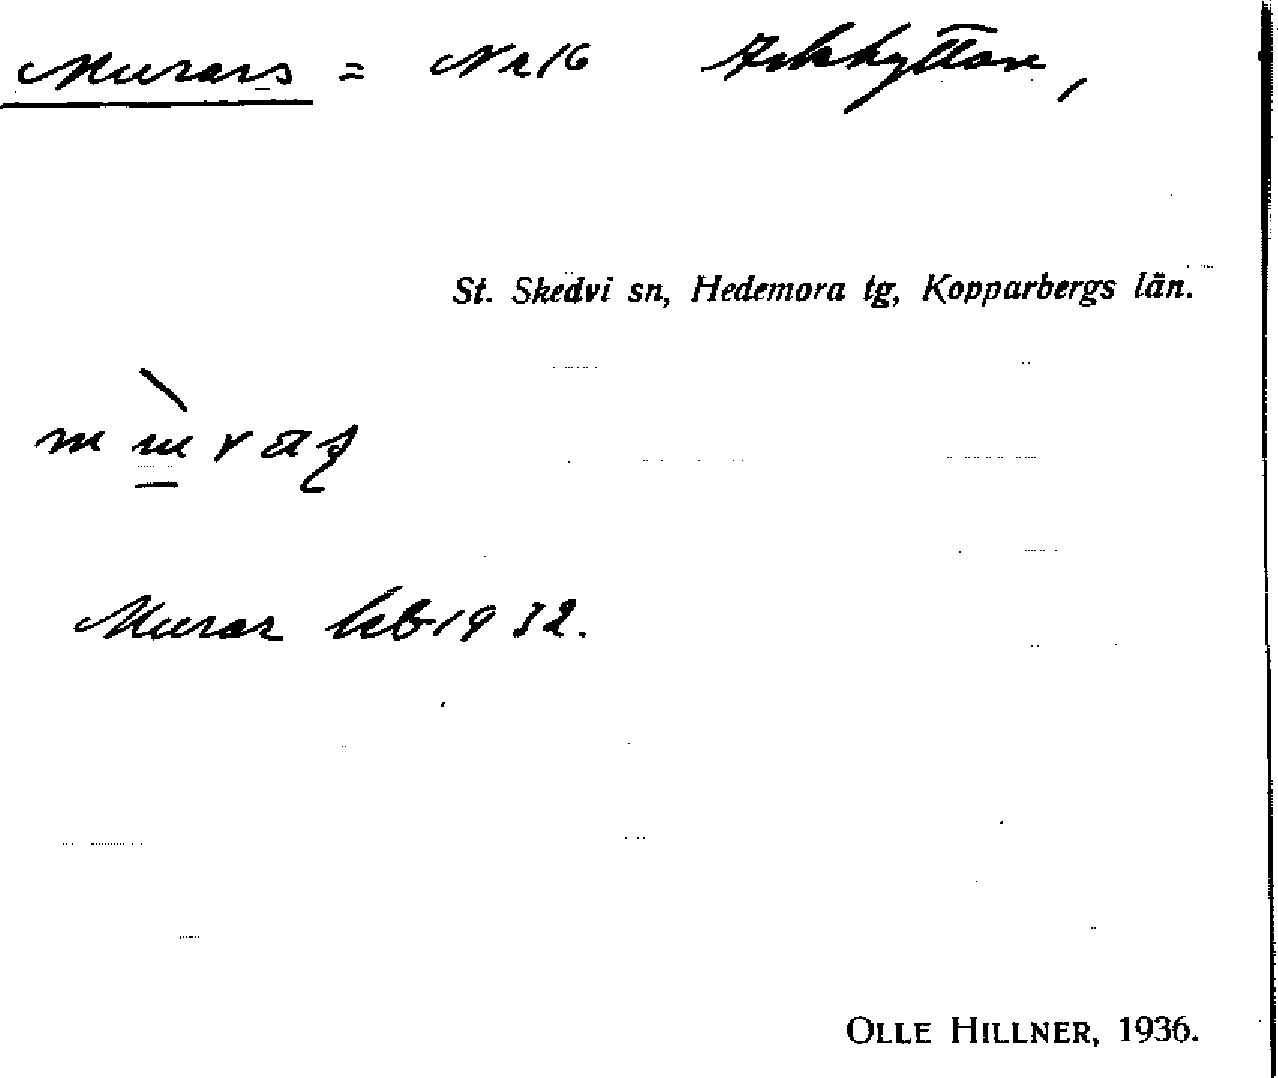 Murars = Nr 16 Arkhyttan,
St. Skedvi sn, Hedemora tg, Kopparbergs län.
Murar lcb 1932.
OLLE HILLNER, 1936.